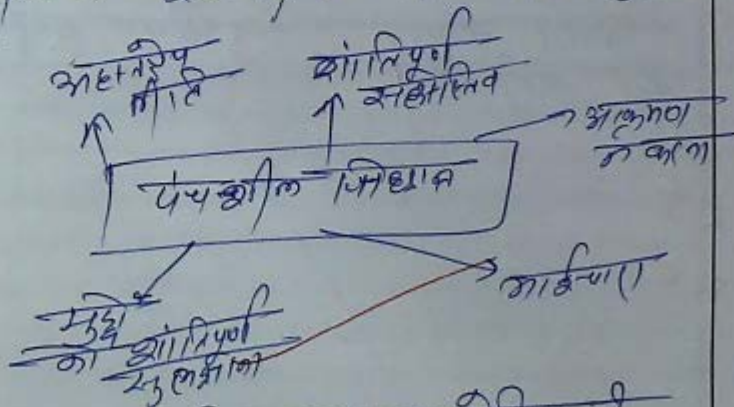 अहस्तक्षेप
नीति
शांतिपूर्ण
सहअस्तित्व
आक्रमण
न करना
पंचशील सिद्धान्त
भाईचारा
मुद्दो
का शांतिपूर्ण
सुलझाना